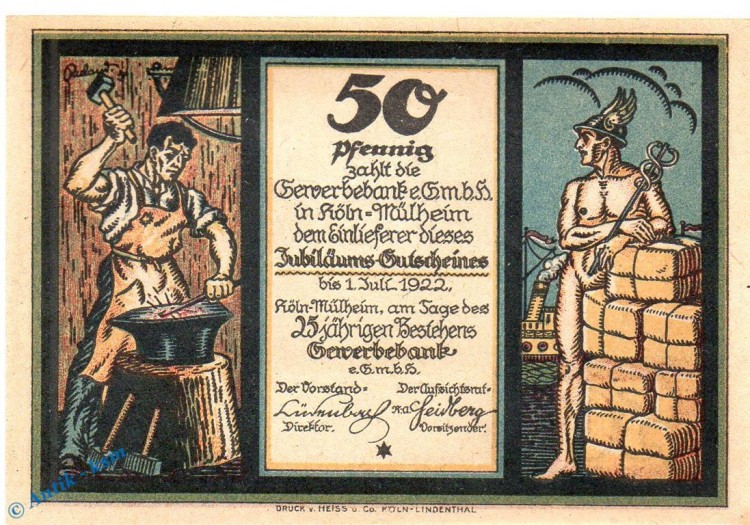 50
Pfennig
zahlt die
Gewerbebank e.G.m.b.H.
in Köln-Mülheim
dem Einlieferer dieses
Jubiläums-Gutscheines
bis 1. Juli 1922.
Köln-Mülheim, am Tage des
25 jährigen Bestehens
Gewerbebank
e.G.m.b.H.
Der Vorstand- Der Aufsichtsrat-
Lüdenbach R.A. Heidberg
Direktor. Vorsitzender.
DRUCK v. HEISS u. Co. KÖLN-LINDENTHAL
© Antik - kspn